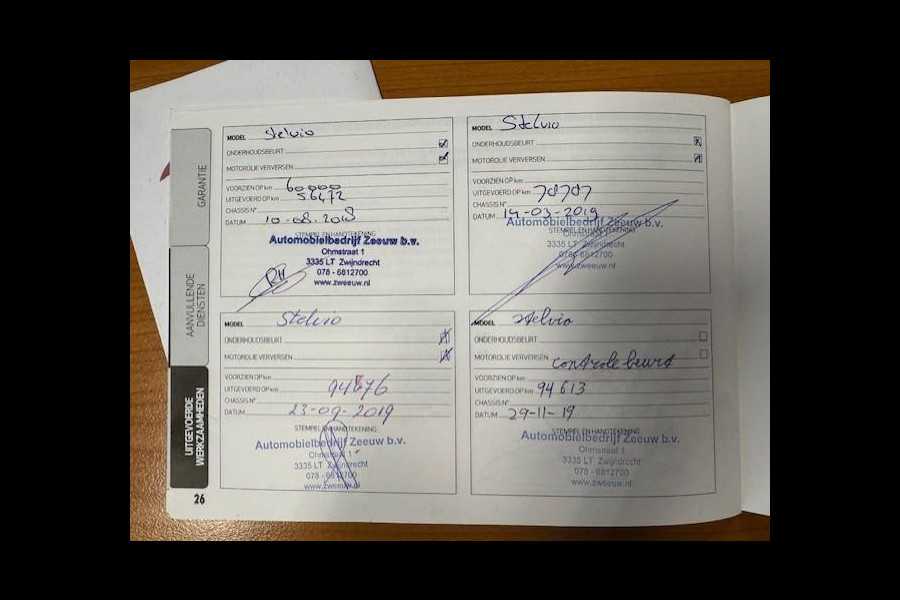 GARANTIE
AANVULLENDE
DIENSTEN
UITGEVOERDE
WERKZAAMHEDEN
26
MODEL Stelvio
ONDERHOUDSBEURT
MOTOROLIE VERVERSEN
VOORZIEN OP km 60000
UITGEVOERD OP km 56472
CHASSIS N°
DATUM 10-08-2018
STEMPEL EN HANDTEKENING
Automobielbedrijf Zeeuw b.v.
Ohmstraat 1
3335 LT Zwijndrecht
078 - 6812700
www.zweeuw.nl
MODEL Stelvio
ONDERHOUDSBEURT
MOTOROLIE VERVERSEN
VOORZIEN OP km
UITGEVOERD OP km
CHASSIS N°
DATUM 14-03-2019
STEMPEL EN HANDTEKENING
Automobielbedrijf Zeeuw b.v.
Ohmstraat 1
3335 LT Zwijndrecht
078 - 6812700
www.zweeuw.nl
MODEL Stelvio
ONDERHOUDSBEURT
MOTOROLIE VERVERSEN
VOORZIEN OP km
UITGEVOERD OP km
CHASSIS N°
DATUM 23-09-2019
STEMPEL EN HANDTEKENING
Automobielbedrijf Zeeuw b.v.
Ohmstraat 1
3335 LT Zwijndrecht
078 - 6812700
www.zweeuw.nl
MODEL Stelvio
ONDERHOUDSBEURT
MOTOROLIE VERVERSEN controle beurt
VOORZIEN OP km
UITGEVOERD OP km 94613
CHASSIS N°
DATUM 29-11-19
STEMPEL EN HANDTEKENING
Automobielbedrijf Zeeuw b.v.
Ohmstraat 1
3335 LT Zwijndrecht
078 - 6812700
www.zweeuw.nl